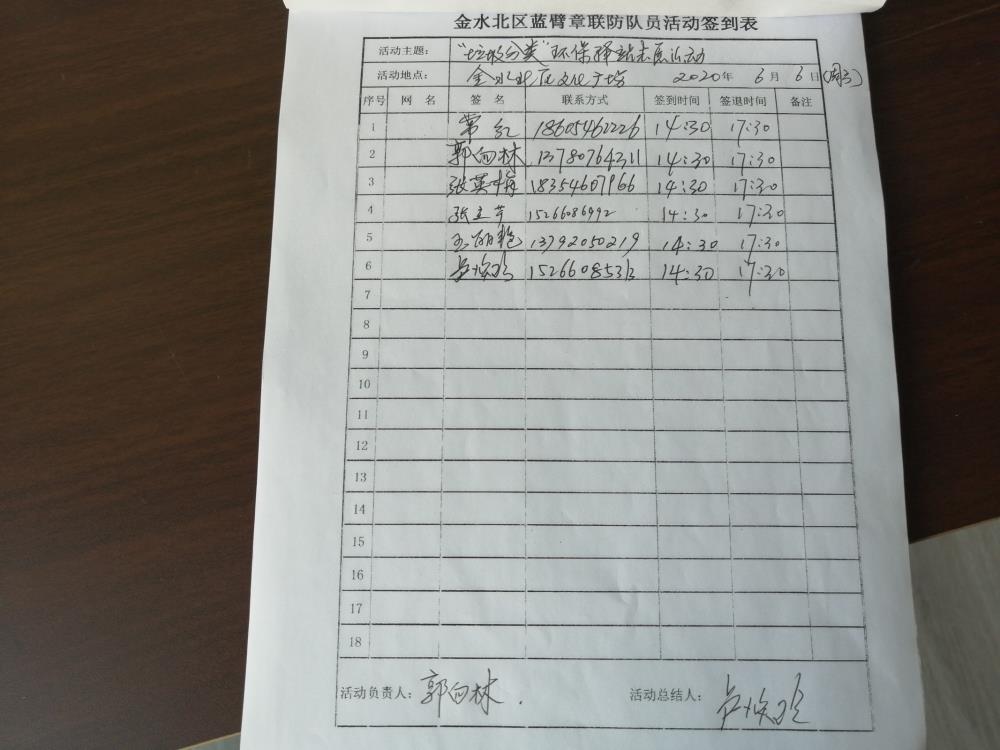 金水北区蓝臂章联防队员活动签到表
活动主题: "垃圾分类"环保驿站志愿活动
活动地点: 金水北区文化广场 2020年 6月 6日
序号 网 名 签 名 联系方式 签到时间 签退时间 备注
1 常红 18605462226 14:30 17:30
2 郭向林 13780764311 14:30 17:30
3 张英梅 18354607966 14:30 17:30
4 张立芳 15266086992 14:30 17:30
5 王丽艳 13792050219 14:30 17:30
6 14:30 17:30
7
8
9
10
11
12
13
14
15
16
17
18
活动负责人: 郭向林. 活动总结人: